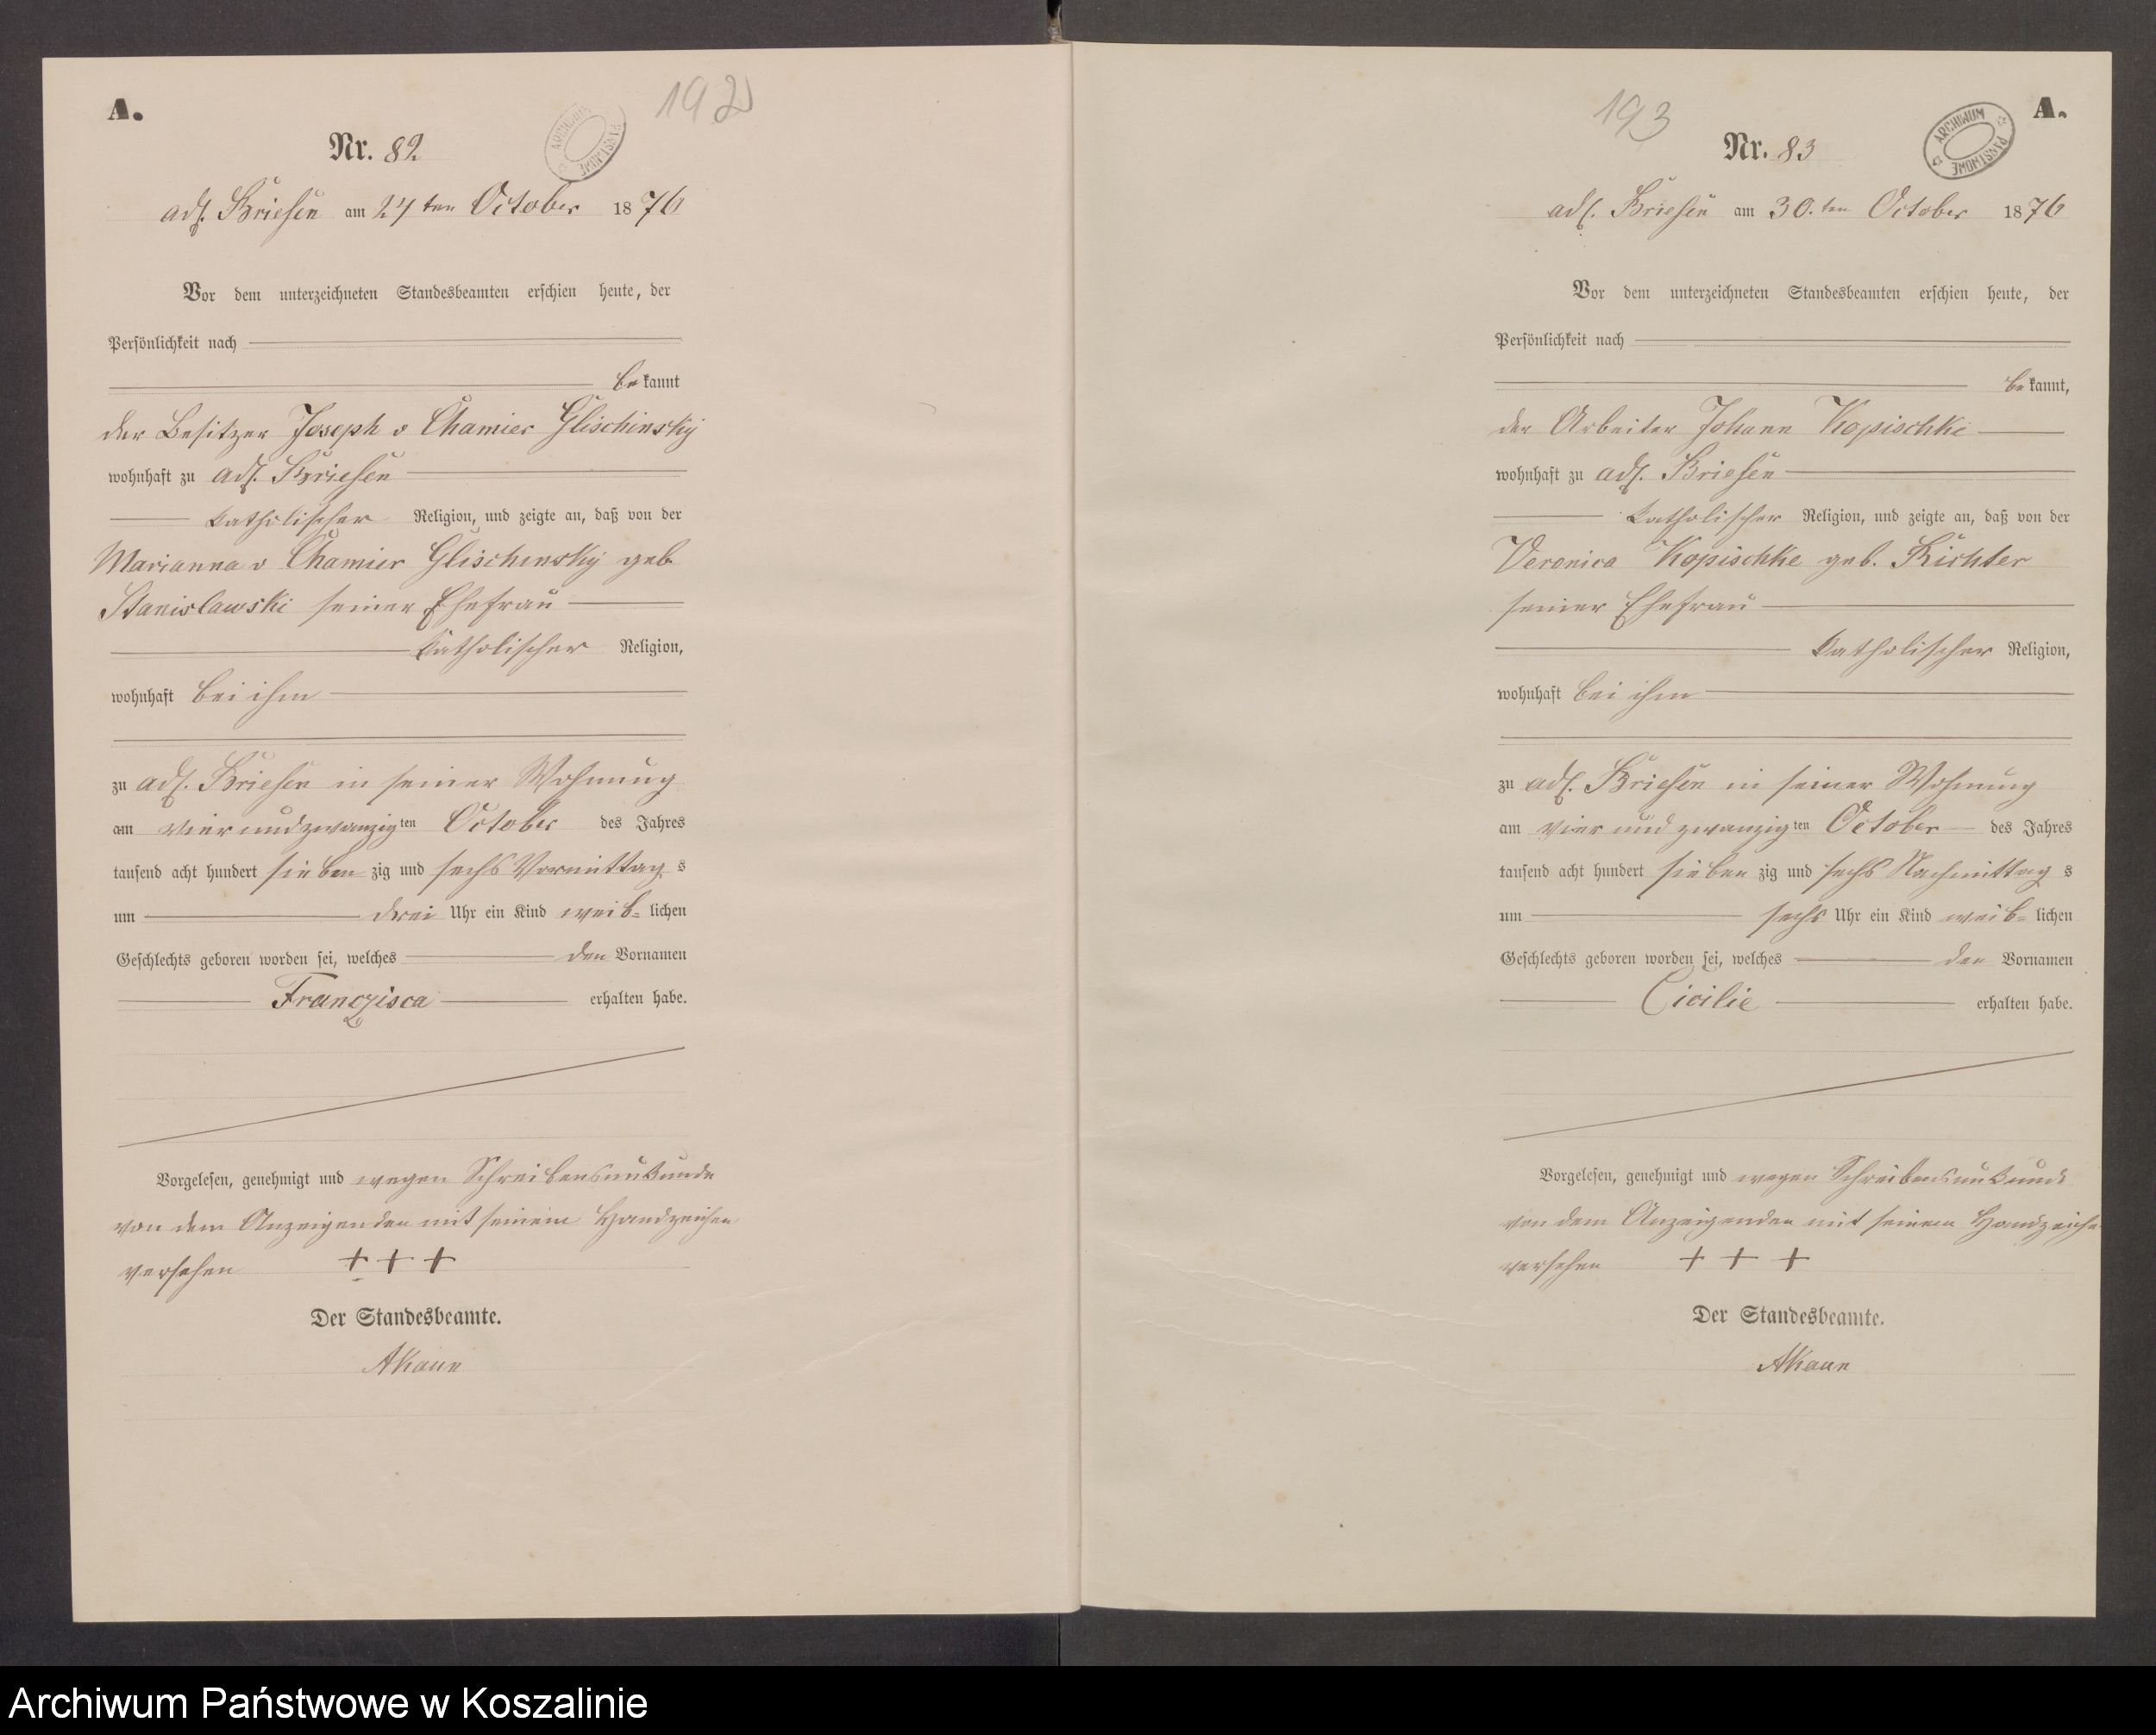 A.
192
Nr. 82
ARCHIWUM PAŃSTWOWE
adl. Briesen am 24ten October 1876
Vor dem unterzeichneten Standesbeamten erschien heute, der
Persönlichkeit nach
bekannt
der Besitzer Joseph v Chamier Glischinsky
wohnhaft zu adl. Briesen
katholischer Religion, und zeigte an, daß von der
Marianna v Chamier Glischinsky geb
Stanislawski seiner Ehefrau
katholischer Religion,
wohnhaft bei ihm
zu adl. Briesen in seiner Wohnung
am vierundzwanzigten October des Jahres
tausend acht hundert siebenzig und sechs Vormittags
um drei Uhr ein Kind weib=lichen
Geschlechts geboren worden sei, welches den Vornamen
Franczisca erhalten habe.
Vorgelesen, genehmigt und wegen Schreibensunkunde
von dem Anzeigenden mit seinem Handzeichen
versehen + + +
Der Standesbeamte.
AKaun
A.
193
Nr. 83
ARCHIWUM PAŃSTWOWE
adl. Briesen am 30.ten October 1876
Vor dem unterzeichneten Standesbeamten erschien heute, der
Persönlichkeit nach
bekannt,
der Arbeiter Johann Kopischke
wohnhaft zu adl. Briesen
katholischer Religion, und zeigte an, daß von der
Veronica Kopischke geb. Richter
seiner Ehefrau
katholischer Religion,
wohnhaft bei ihm
zu adl. Briesen in seiner Wohnung
am vier und zwanzigten October des Jahres
tausend acht hundert siebenzig und sechs Nachmittags
um sechs Uhr ein Kind weib=lichen
Geschlechts geboren worden sei, welches den Vornamen
Cicilie erhalten habe.
Vorgelesen, genehmigt und wegen Schreibensunkunde
von dem Anzeigenden mit seinem Handzeiche
versehen + + +
Der Standesbeamte.
AKaun
Archiwum Państwowe w Koszalinie